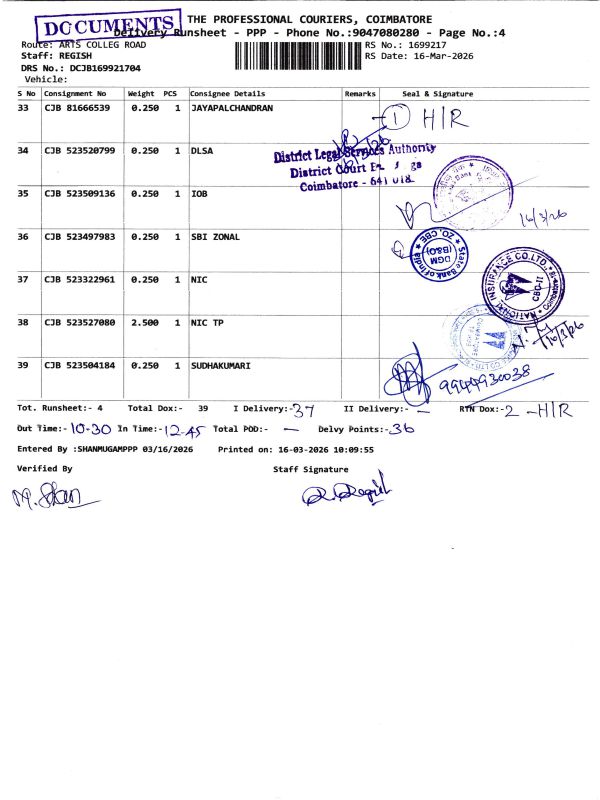 DOCUMENTS
THE PROFESSIONAL COURIERS, COIMBATORE
Delivery Runsheet - PPP - Phone No.:9047080280 - Page No.:4
Route: ARTS COLLEG ROAD
RS No.: 1699217
Staff: REGISH
RS Date: 16-Mar-2026
DRS No.: DCJB169921704
Vehicle:
S No Consignment No Weight PCS Consignee Details Remarks Seal & Signature
33 CJB 81666539 0.250 1 JAYAPALCHANDRAN
1 H/R
34 CJB 523520799 0.250 1 DLSA
District Legal Services Authority
District Court
Coimbatore - 641 018.
35 CJB 523509136 0.250 1 IOB
16/3/26
36 CJB 523497983 0.250 1 SBI ZONAL
State Bank of India
DGM
(B&O)
ZO, CBE
37 CJB 523322961 0.250 1 NIC
NATIONAL INSURANCE CO.LTD.
CBO-II
Coimbatore
38 CJB 523527080 2.500 1 NIC TP
16/3/26
39 CJB 523504184 0.250 1 SUDHAKUMARI
9944930038
Tot. Runsheet:- 4 Total Dox:- 39 I Delivery:- 37 II Delivery:- — RTN Dox:- 2 - H/R
Out Time:- 10-30 In Time:- 12-45 Total POD:- — Delvy Points:- 36
Entered By :SHANMUGAMPPP 03/16/2026 Printed on: 16-03-2026 10:09:55
Verified By Staff Signature
M. Shan R. Regish